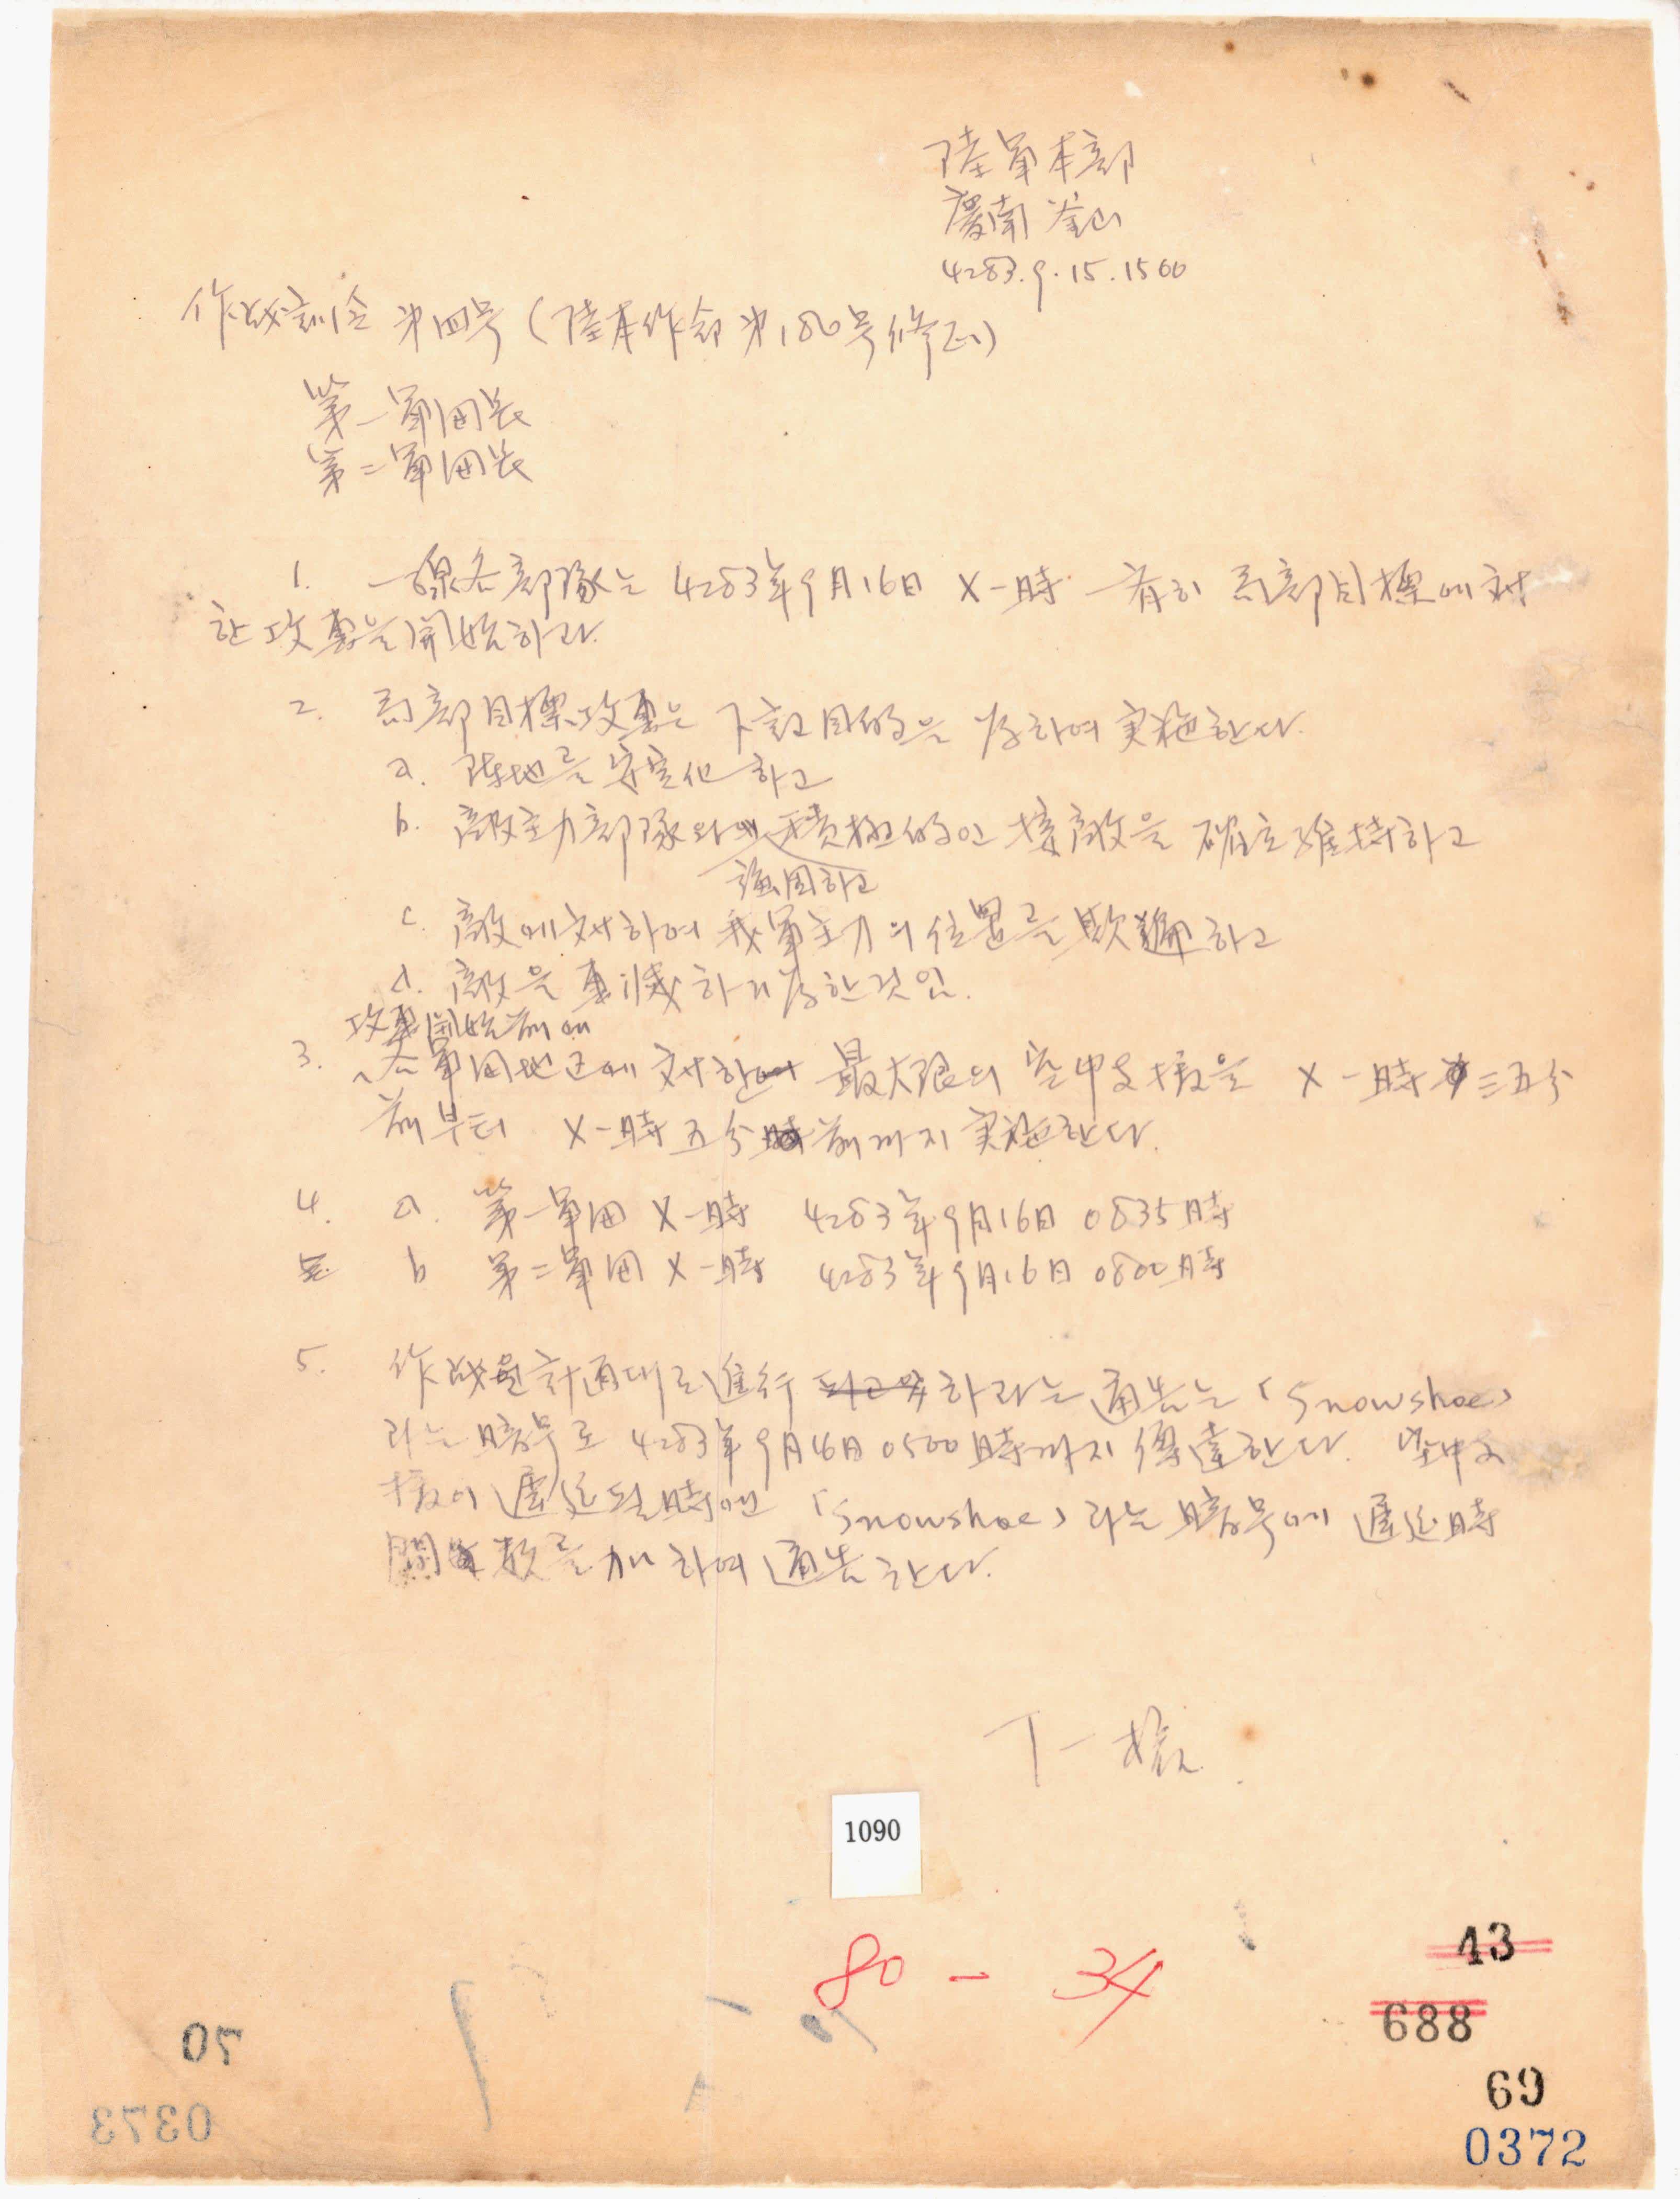 陸軍本部
慶南 釜山
4283.9.15.1500
作戰訓令 第四号 (陸本作命 第180号 修正)
第一軍団長
第二軍団長
1. 一線各部隊는 4283年9月16日 X-時 一斉히 局部目標에 対
한 攻擊을 開始하라.
2. 局部目標攻擊은 下記目的을 為하여 実施한다.
a. 陣地를 安定化하고
b. 敵主力部隊와의 積極的인 接敵을 確立 維持하고
強固하고
c. 敵에 対하여 我軍主力의 位置를 欺騙하고
d. 敵을 擊滅하기 為한 것임.
攻擊開始前에
3. 各軍団地区에 対한 最大限의 空中支援을 X-時 三五分
前부터 X-時 五分 前까지 実施한다.
4. a. 第一軍団 X-時 4283年9月16日 0835時
b 第二軍団 X-時 4283年9月16日 0800時
5. 作戰을 計画대로 進行 하라는 通告는 「Snowshoe」
라는 暗号로 4283年9月16日 0500時까지 傳達한다. 空中支
援이 遲延될 時에는 「Snowshoe」 라는 暗号에 遲延時
間数를 加하여 通告한다.
丁一權
1090
80 - 34
43
688
70
69
0373
0372